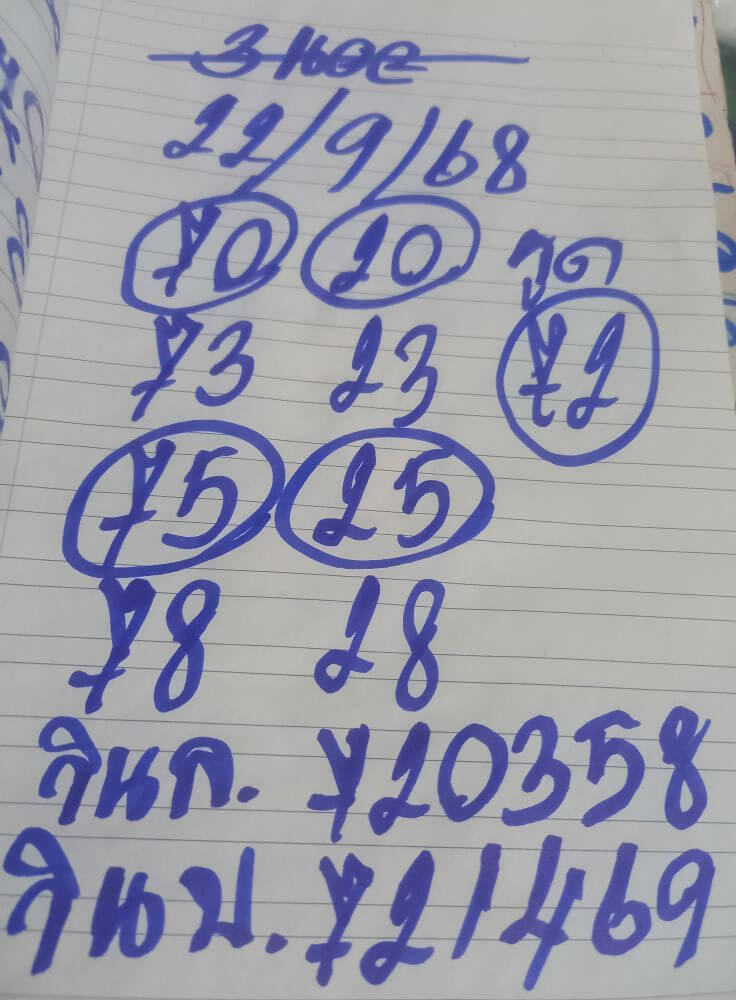 22/9/68
70 20 รูด
73 23 72
75 25
78 28
วินล. 720358
วินบ. 721469